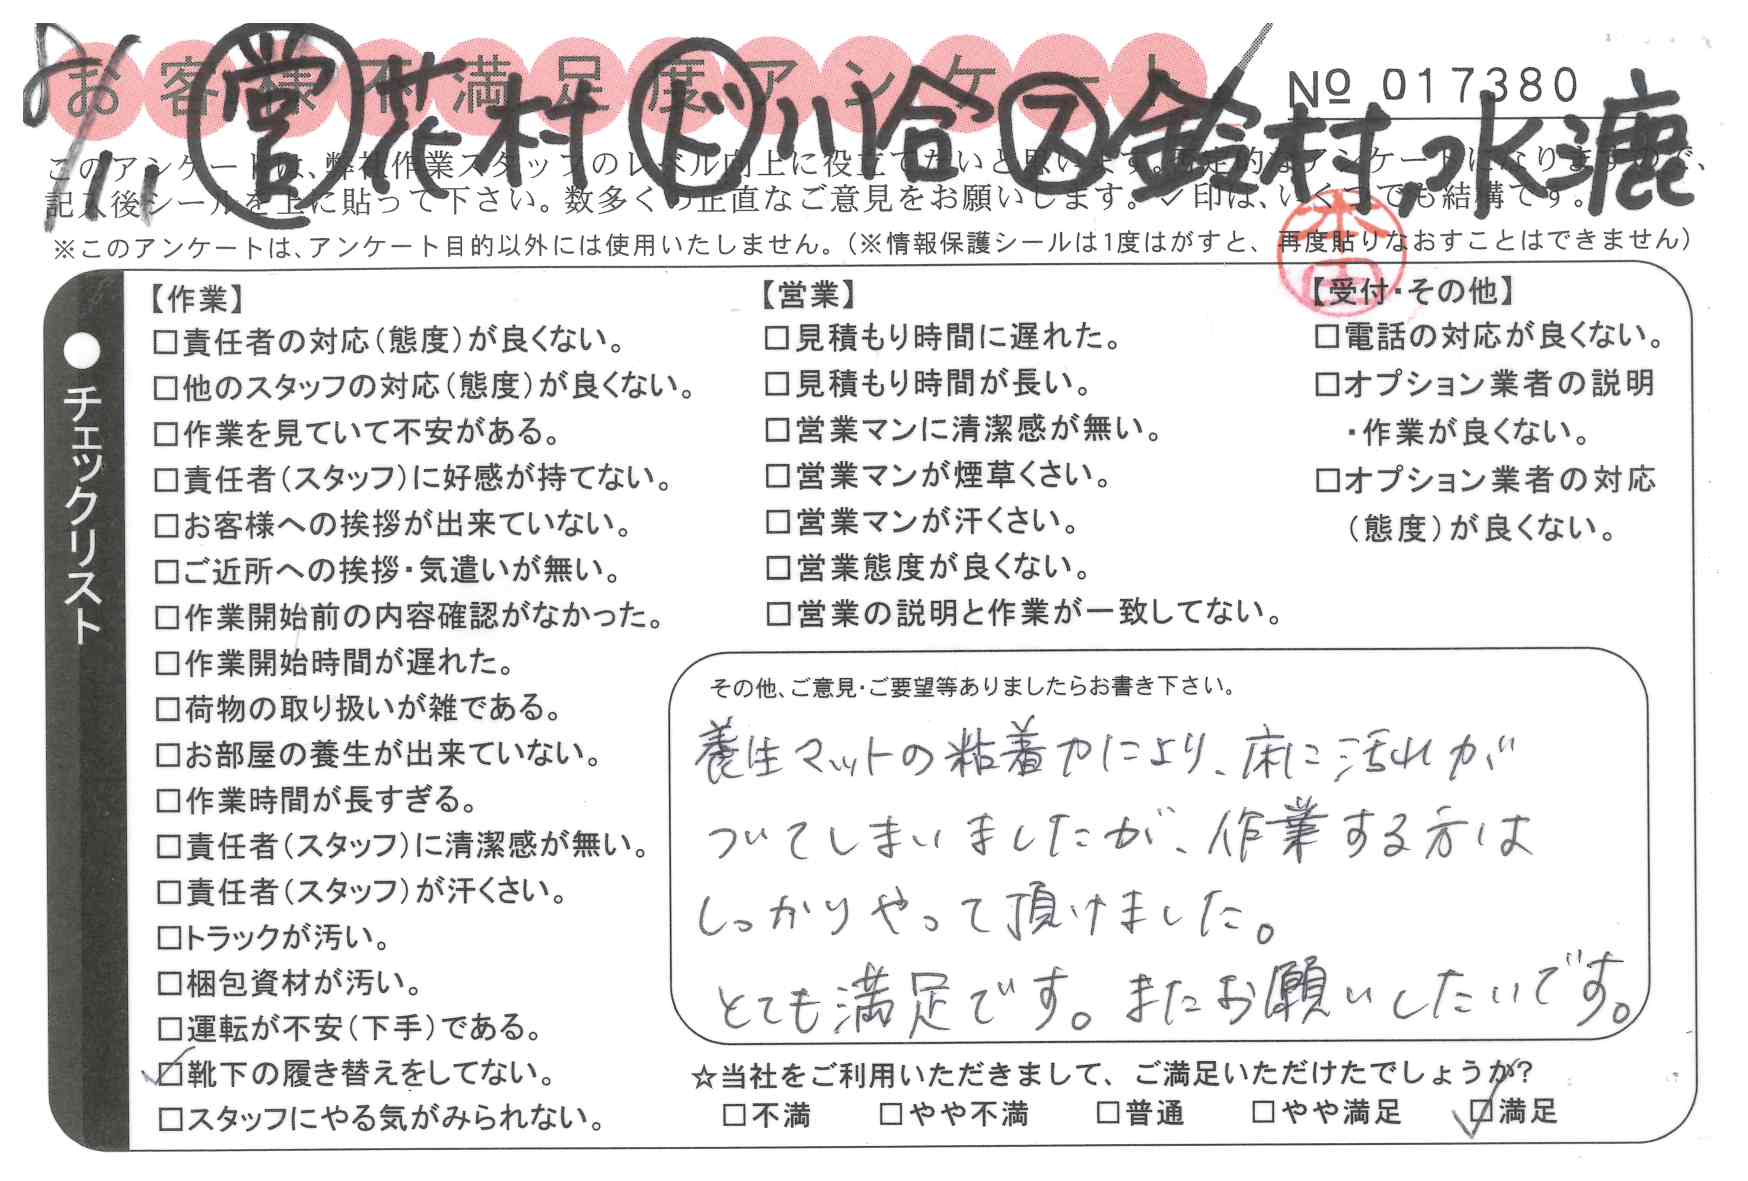 お客様不満足度アンケート
№ 017380
11/11 営 花村 ド 川合 ス 鈴村, 水漉
このアンケートは、弊社作業スタッフのレベル向上に役立てたいと思います。否定的なアンケートになりますので、
記入後シールを上に貼って下さい。数多くの正直なご意見をお願いします。✓印は、いくつでも結構です。
※このアンケートは、アンケート目的以外には使用いたしません。（※情報保護シールは1度はがすと、再度貼りなおすことはできません）
●チェックリスト
【作業】
□責任者の対応（態度）が良くない。
□他のスタッフの対応（態度）が良くない。
□作業を見ていて不安がある。
□責任者（スタッフ）に好感が持てない。
□お客様への挨拶が出来ていない。
□ご近所への挨拶・気遣いが無い。
□作業開始前の内容確認がなかった。
□作業開始時間が遅れた。
□荷物の取り扱いが雑である。
□お部屋の養生が出来ていない。
□作業時間が長すぎる。
□責任者（スタッフ）に清潔感が無い。
□責任者（スタッフ）が汗くさい。
□トラックが汚い。
□梱包資材が汚い。
□運転が不安（下手）である。
☑靴下の履き替えをしてない。
□スタッフにやる気がみられない。
【営業】
□見積もり時間に遅れた。
□見積もり時間が長い。
□営業マンに清潔感が無い。
□営業マンが煙草くさい。
□営業マンが汗くさい。
□営業態度が良くない。
□営業の説明と作業が一致してない。
【受付・その他】
□電話の対応が良くない。
□オプション業者の説明
・作業が良くない。
□オプション業者の対応
（態度）が良くない。
その他、ご意見・ご要望等ありましたらお書き下さい。
養生マットの粘着力により、床に汚れが
ついてしまいましたが、作業する方は
しっかりやって頂けました。
とても満足です。またお願いしたいです。
☆当社をご利用いただきまして、ご満足いただけたでしょうか?
□不満 □やや不満 □普通 □やや満足 ☑満足